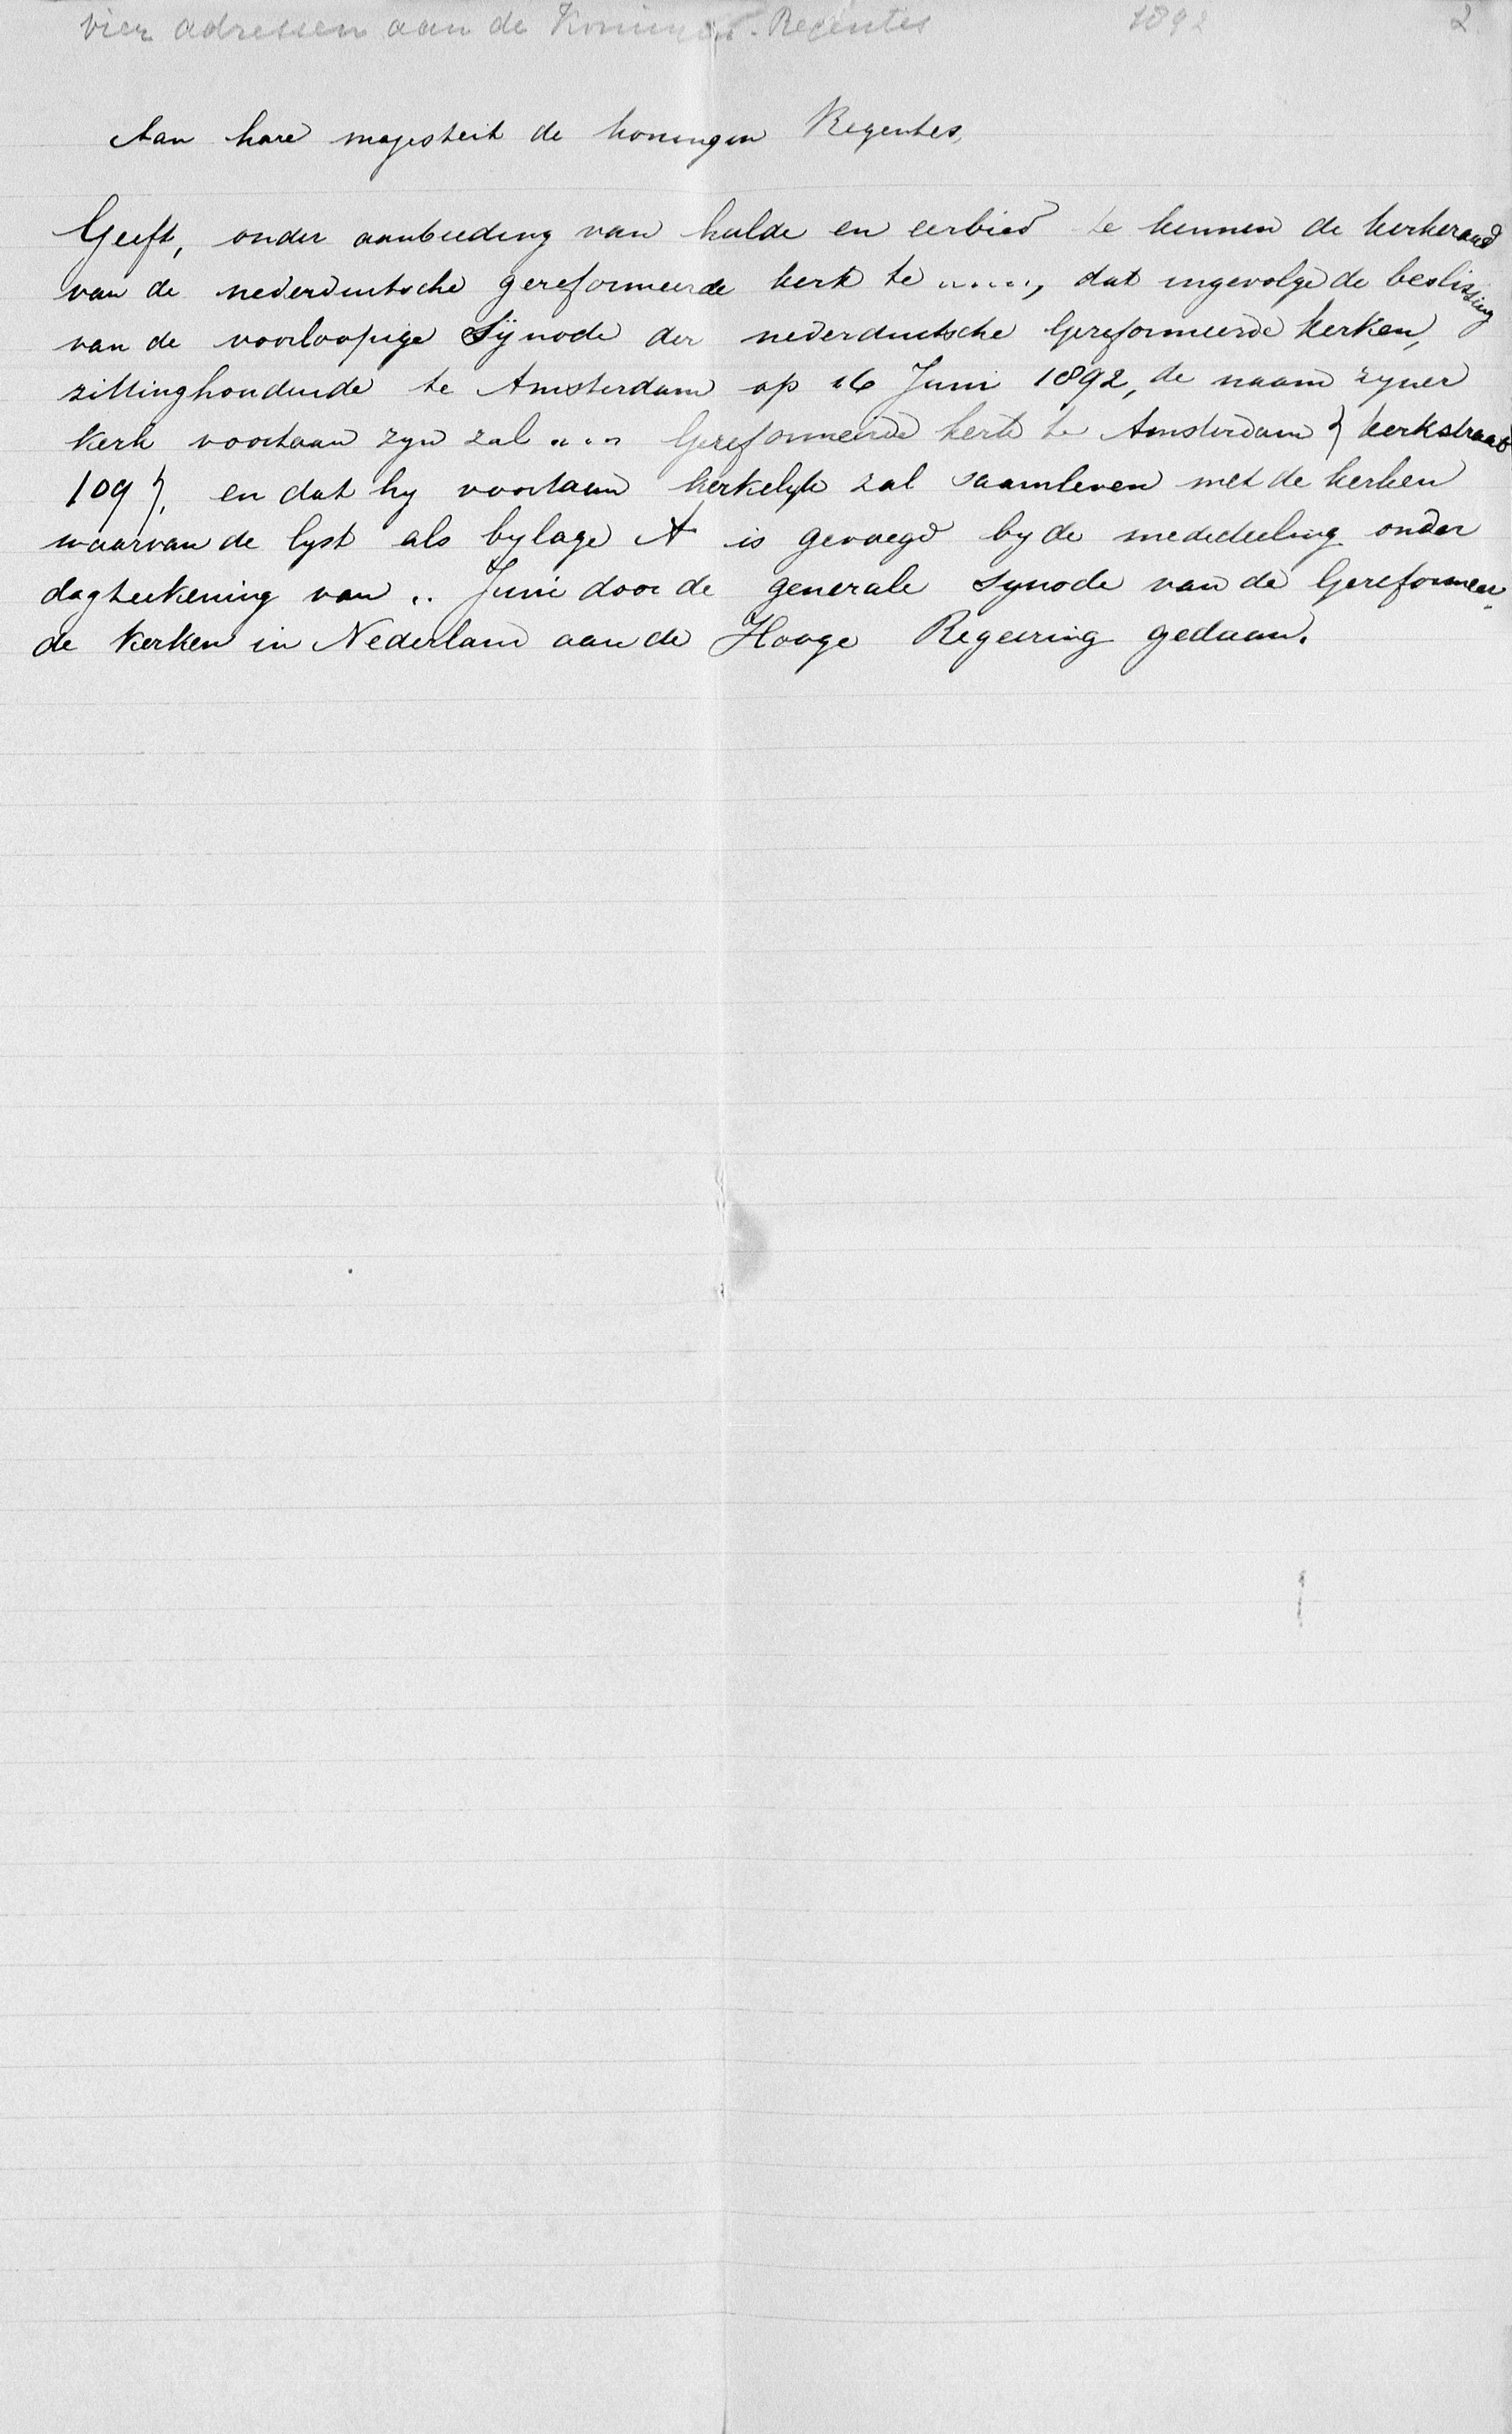 vier adressen aan de Koningin-Regentes 1892 2
Aan hare majesteit de koningin Regentes,
Geeft, onder aanbieding van hulde en eerbied te kennen de kerkeraad
van de nederduitsche gereformeerde kerk te ....., dat ingevolge de beslissing
van de voorloopige Synode der nederduitsche Gereformeerde kerken,
zittinghoudende te Amsterdam op 16 Juni 1892, de naam zyner
kerk voortaan zyn zal .... Gereformeerde kerk te Amsterdam } kerkstraat
109 }, en dat hy voortaan kerkelyk zal saamleven met de kerken
waarvan de lyst als bylage A is gevoegd by de mededeeling onder
dagteekening van .. Juni door de generale synode van de Gereformeer-
de Kerken in Nederland aan de Hooge Regeering gedaan.